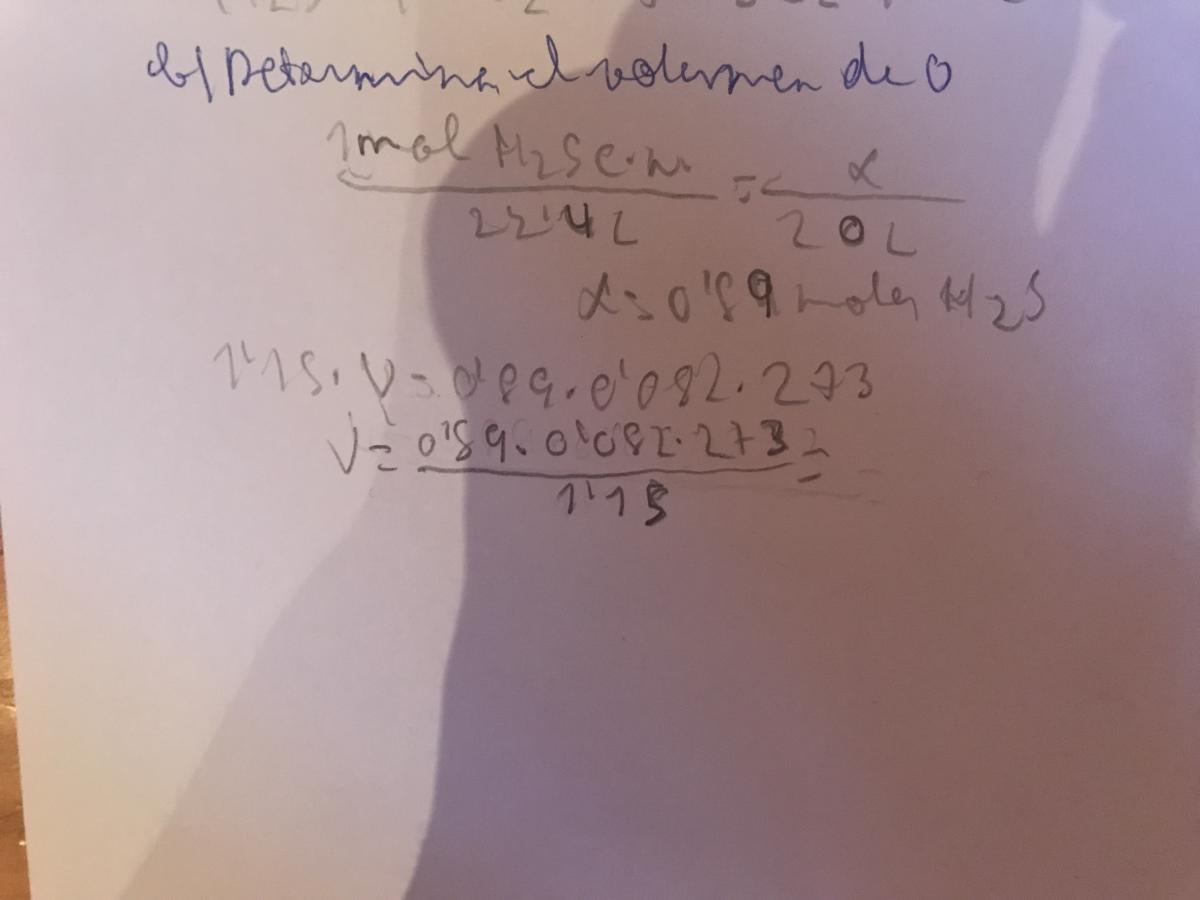 b) Determina el volumen de O
1mol H2S c.n. = α
22'4L 20L
α = 0'89 moles H2S
1'15 · V = 0'89 · 0'082 · 273
V = 0'89 · 0'082 · 273 =
1'15